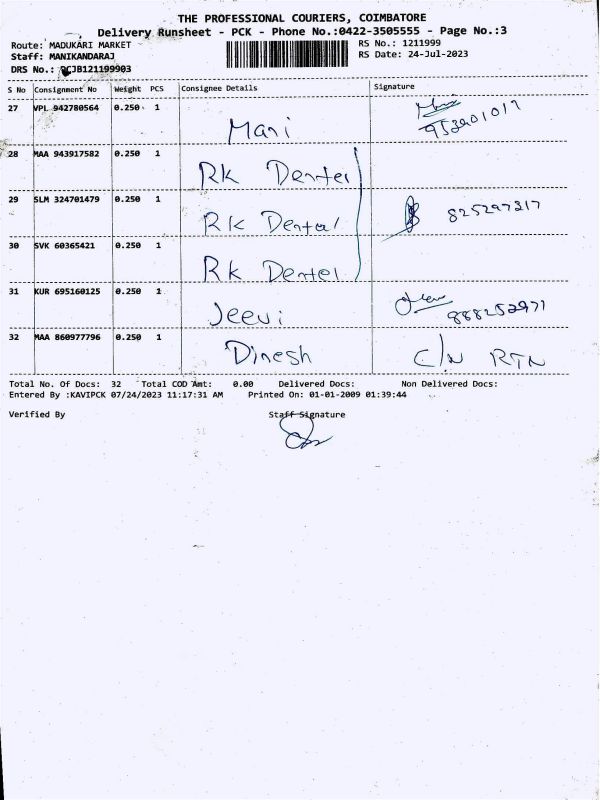 THE PROFESSIONAL COURIERS, COIMBATORE
Delivery Runsheet - PCK - Phone No.:0422-3505555 - Page No.:3
Route: MADUKARI MARKET RS No.: 1211999
Staff: MANIKANDARAJ RS Date: 24-Jul-2023
DRS No.: PCJB121199903
S No Consignment No Weight PCS Consignee Details Signature
27 VPL 942780564 0.250 1 Mani
28 MAA 943917582 0.250 1 RK Dentel
29 SLM 324701479 0.250 1 RK Dental
30 SVK 60365421 0.250 1 Rk Dentel
31 KUR 695160125 0.250 1 Jeevi
888252971
32 MAA 860977796 0.250 1 Dinesh C/N RTN
Total No. Of Docs: 32 Total COD Amt: 0.00 Delivered Docs: Non Delivered Docs:
Entered By :KAVIPCK 07/24/2023 11:17:31 AM Printed On: 01-01-2009 01:39:44
Verified By Staff Signature